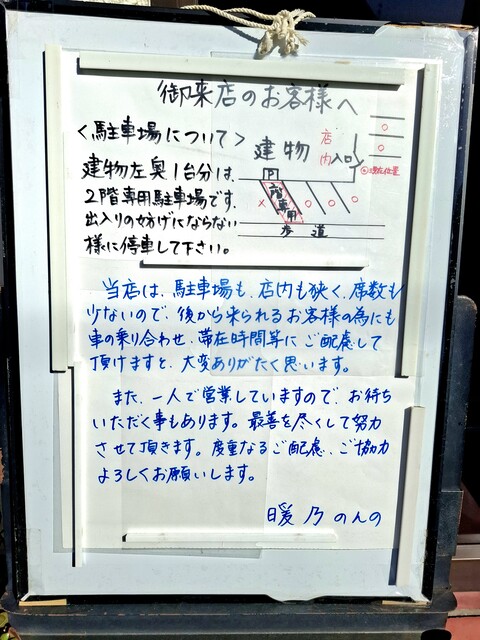 御来店のお客様へ
<駐車場について>
建物左奥1台分は、
2階専用駐車場です。
出入りの妨げにならない
様に停車して下さい。
建物
店内
入口
現在位置
P
2階専用
歩道
当店は、駐車場も、店内も狭く、席数も
少ないので、後から来られるお客様の為にも
車の乗り合わせ、滞在時間等にご配慮して
頂けますと、大変ありがたく思います。
また、一人で営業していますので、お待ち
いただく事もあります。最善を尽くして努力
させて頂きます。度重なるご配慮、ご協力
よろしくお願いします。
暖乃 のんの